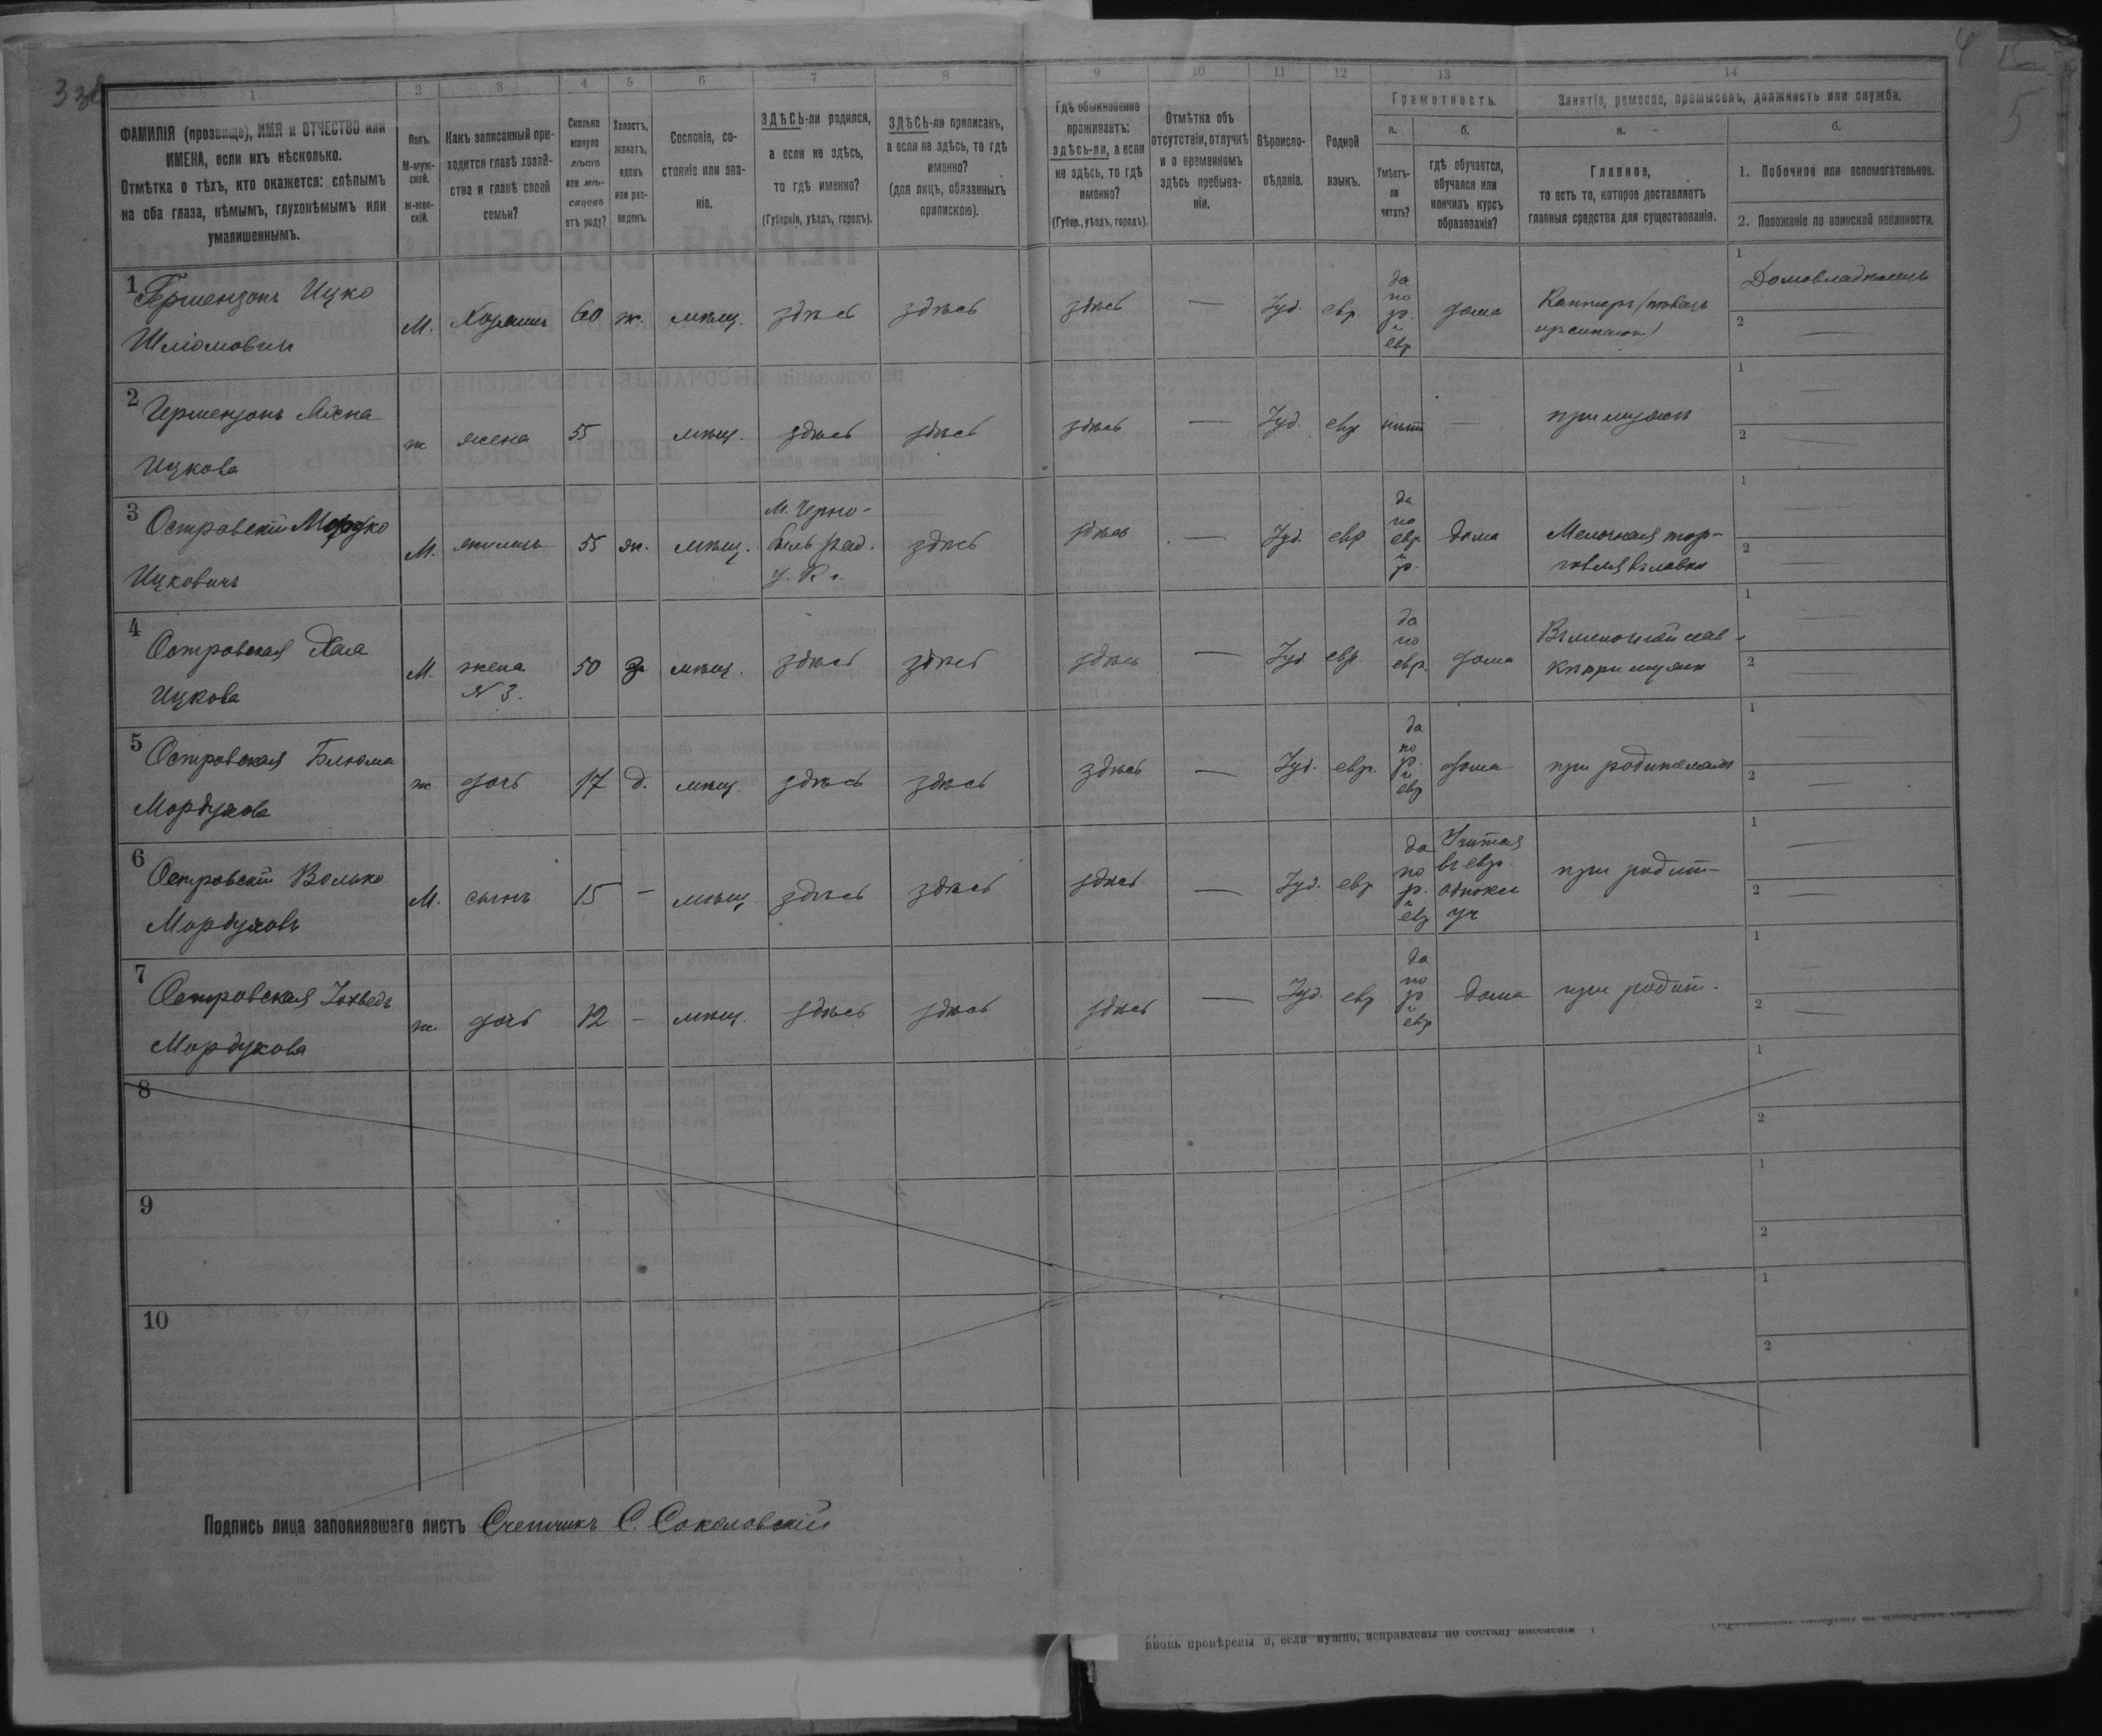 4
5
1 2 3 4 5 6 7 8 9 10 11 12 13 14
ФАМИЛІЯ (прозвище), ИМЯ и ОТЧЕСТВО или
ИМЕНА, если ихъ нѣсколько.
Отмѣтка о тѣхъ, кто окажется: слѣпымъ
на оба глаза, нѣмымъ, глухонѣмымъ или
умалишеннымъ.
Полъ.
М-муж-
ской.
ж-жен-
скій.
Какъ записанный при-
ходится главѣ хозяй-
ства и главѣ своей
семьи?
Сколько
минуло
лѣтъ
или мѣ-
сяцевъ
отъ роду?
Холостъ,
женатъ,
вдовъ
или раз-
веденъ.
Сословіе, со-
стояніе или зва-
ніе.
ЗДѢСЬ-ли родился,
а если не здѣсь,
то гдѣ именно?
(Губернія, уѣздъ, городъ).
ЗДѢСЬ-ли приписанъ,
а если не здѣсь, то гдѣ
именно?
(для лицъ, обязанныхъ
припискою).
Гдѣ обыкновенно
проживаетъ:
здѣсь-ли, а если
не здѣсь, то гдѣ
именно?
(Губер., уѣздъ, городъ).
Отмѣтка объ
отсутствіи, отлучкѣ
и о временномъ
здѣсь пребыва-
ніи.
Вѣроиспо-
вѣданіе.
Родной
языкъ.
Грамотность.
а.
Умѣетъ-
ли
читать?
б.
гдѣ обучается,
обучался или
кончилъ курсъ
образованія?
Занятіе, ремесло, промыселъ, должность или служба.
а.
Главное,
то есть то, которое доставляетъ
главныя средства для существованія.
б.
1. Побочное или вспомогательное.
2. Положеніе по воинской повинности.
1 Гершензонъ Ицко
Шліомовичъ
М. Хозяинъ 60 ж. мѣщ. здѣсь здѣсь здѣсь — Іуд. евр. да по р. и евр дома
1 Домовладѣлецъ
2 —
2 Гершензонъ
Ицкова
ж жена 55 мѣщ. здѣсь здѣсь здѣсь — Іуд. евр нѣтъ — при мужѣ
1 —
2 —
3 Островскій
Ицковичъ
М. жилецъ 55 ж. мѣщ. М. Черно-
быль Рад.
у. К г.
здѣсь здѣсь — Іуд. евр да по евр. и р. дома Мелочная тор-
говля въ лавкѣ
1 —
2 —
4 Островская Хая
Ицкова
М. жена
N 3.
50 з мѣщ. здѣсь здѣсь здѣсь — Іуд. евр да по евр. дома Въ мелочной лав-
кѣ при мужѣ
1 —
2 —
5 Островская Блюма
Мордухова
ж дочь 17 д. мѣщ. здѣсь здѣсь здѣсь — Іуд. евр. да по р. и евр дома при родителяхъ
1 —
2 —
6 Островскій Волько
Мордуховъ
М. сынъ 15 — мѣщ. здѣсь здѣсь здѣсь — Іуд. евр да по р. и евр
въ евр.
уч
при родит-
1 —
2 —
7 Островская Іохведъ
Мордухова
ж дочь 12 — мѣщ. здѣсь здѣсь здѣсь — Іуд. евр да по р. и евр дома при родит.
1 —
2 —
8
1
2
9
1
2
10
1
2
Подпись лица заполнявшаго листъ Счетчикъ С. Соколовскій
вновь провѣрены и, если нужно, исправлены по составу населенія